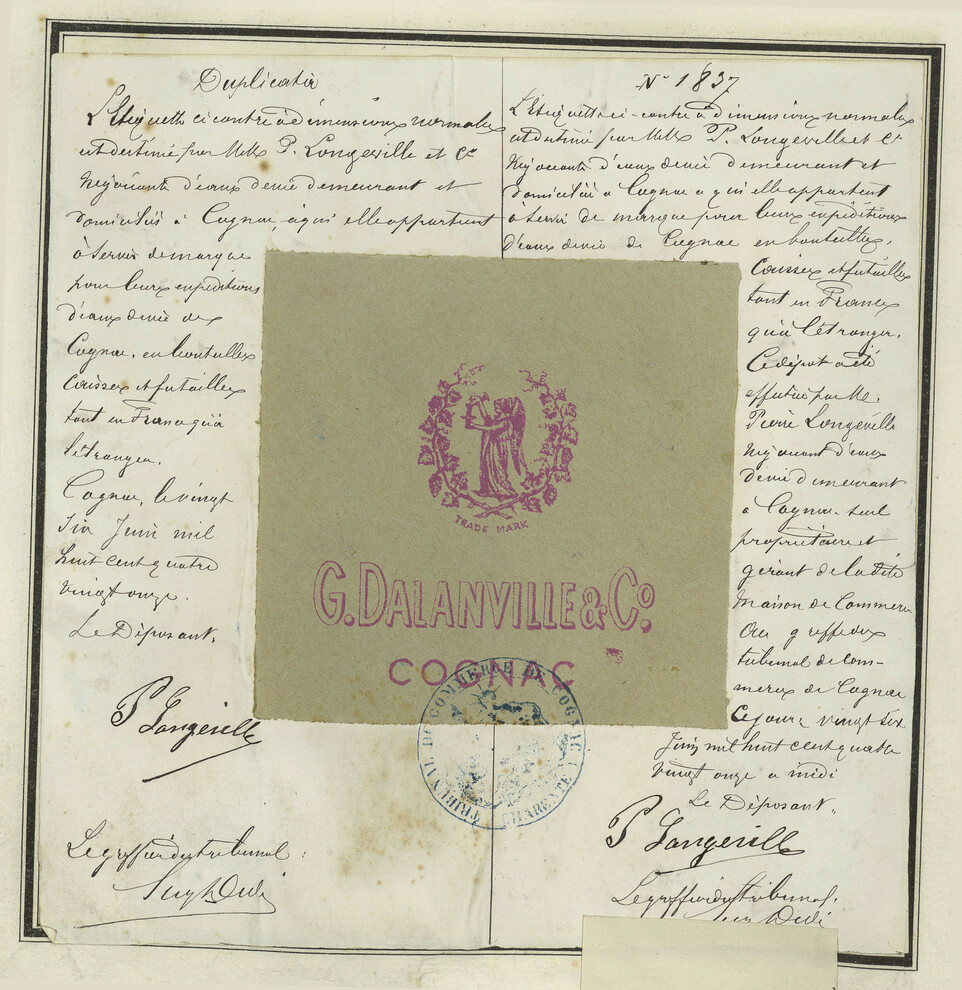 Duplicata
L'Etiquette ci contre à dimensions normales
est destiné par MMrs P. Longeville et Cie
Négociants d'eaux de vie demeurant et
domiciliés à Cognac, à qui elle appartient
à servir de marque
pour leurs expéditions
d'eaux de vie de
Cognac, en bouteilles
Caisses et futailles
tant en France qu'à
l'étranger.
Cognac, le vingt
Six Juin mil
huit cent quatre
vingt onze.
Le Déposant,
P Longeville
Le greffier du tribunal:
No 1837
L'Etiquette ci-contre à dimensions normales
est destiné par MMrs P. Longeville et Cie
Négociants d'eaux de vie demeurant et
domiciliés à Cognac à qui elle appartient
à servir de marque pour leurs expéditions
d'eaux de vie de Cognac en bouteilles,
Caisses et futailles
tant en France
qu'à l'étranger.
Ce dépôt a été
effectué par Mr.
Pierre Longeville
Négociant d'eaux
de vie demeurant
à Cognac. seul
propriétaire et
gérant de la dite
Maison de Commerce
au greffe du
tribunal de Com-
merce de Cognac
Ce jour: vingt six
Juin mil huit cent quatre
vingt onze à midi
Le Déposant,
P Longeville
Le greffier du tribunal.
TRADE MARK
G. DALANVILLE & Co.
COGNAC
TRIBUNAL DE COMMERCE DE COGNAC (CHARENTE)